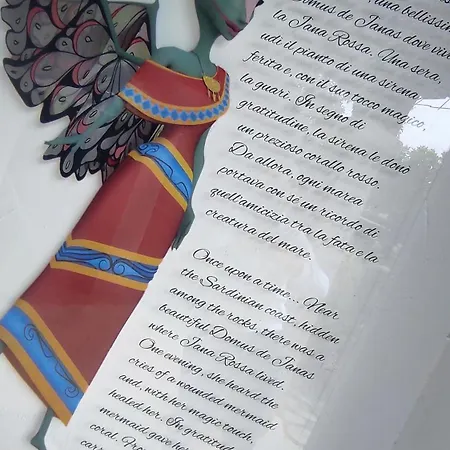 una bellissima
Domus de Janas dove viveva
la Jana Rossa. Una sera,
udì il pianto di una sirena
ferita e, con il suo tocco magico,
la guarì. In segno di
gratitudine, la sirena le donò
un prezioso corallo rosso.
Da allora, ogni marea
portava con sé un ricordo di
quell'amicizia tra la fata e la
creatura del mare.
Once upon a time... Near
the Sardinian coast, hidden
among the rocks, there was a
beautiful Domus de Janas
where Jana Rossa lived.
One evening, she heard the
cries of a wounded mermaid
and, with her magic touch,
healed her. In gratitud
mermaid gave he
coral. Fro
carr